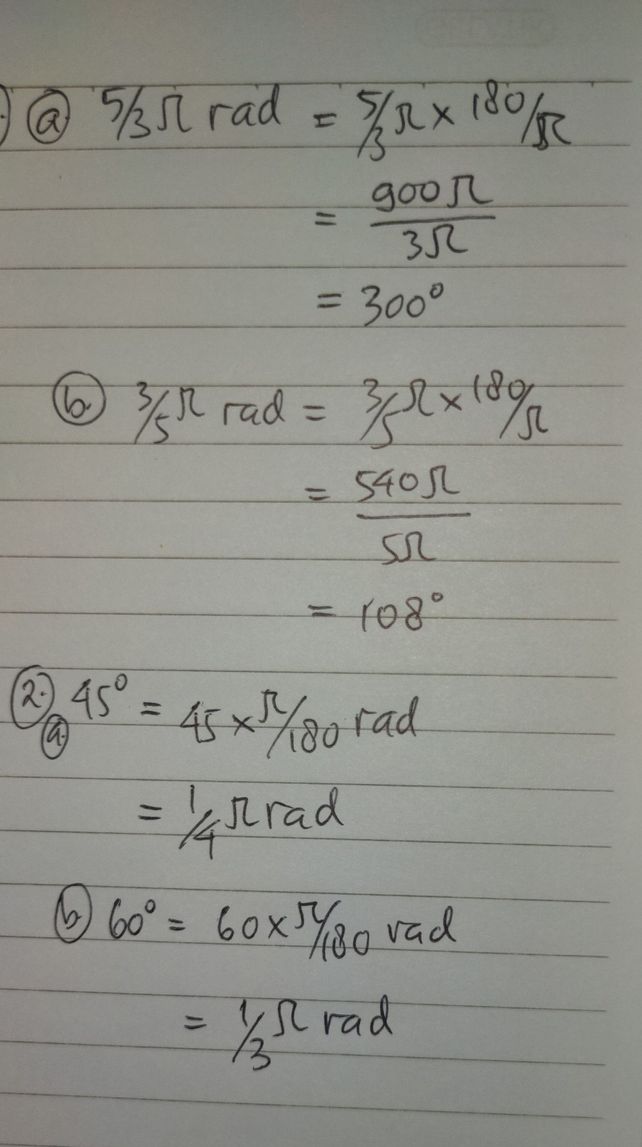 a 5/3 Ω rad = 5/3 Ω × 180/Ω
= 900Ω / 3Ω
= 300°
b. 3/5 Ω rad = 3/5 Ω × 180/Ω
= 540Ω / 5Ω
= 108°
2. a. 45° = 45 × Ω/180 rad
= 1/4 Ω rad
b. 60° = 60 × Ω/180 rad
= 1/3 Ω rad